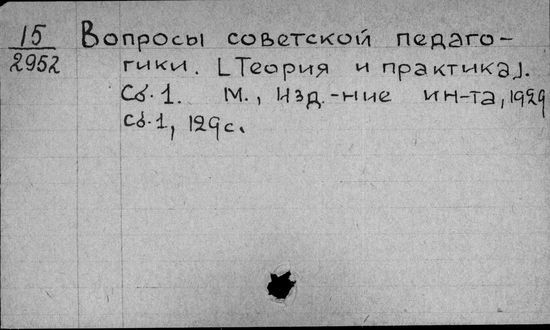 15
2952
Вопросы советской педаго-
гики. [Теория и практика].
Сб.1. М., Изд.-ние ин-та, 1929
Сб.1, 129с.